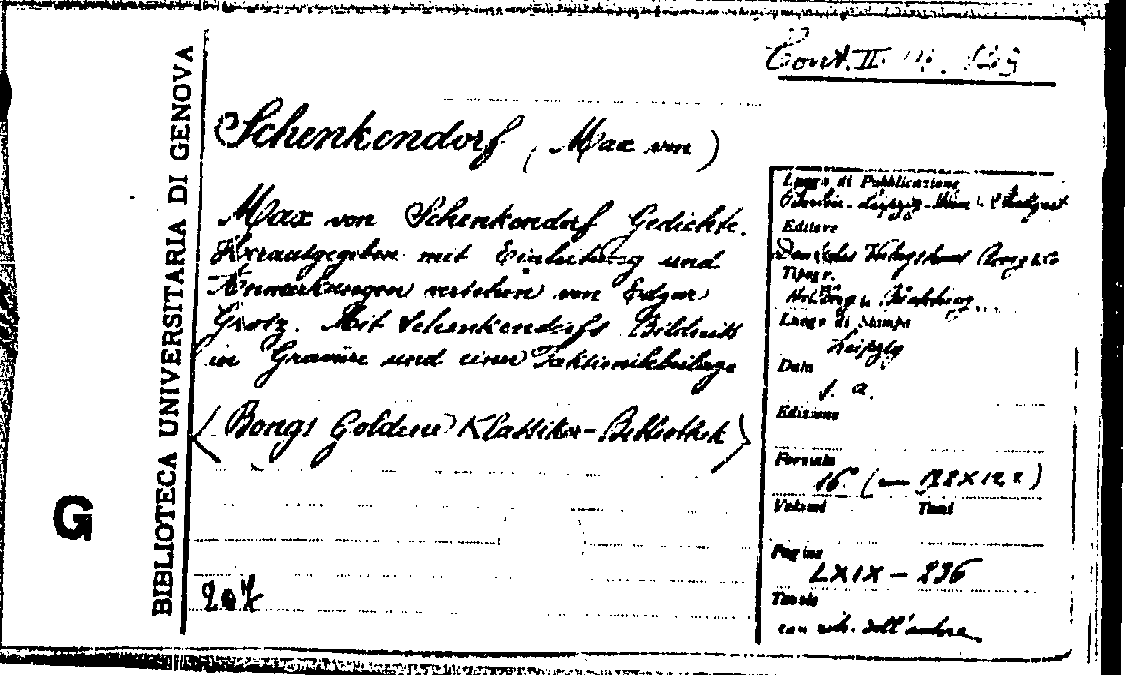 BIBLIOTECA UNIVERSITARIA DI GENOVA
G
Cont. II.
Schenkendorf, (Max von)
Max von Schenkendorf Gedichte.
Herausgegeben mit Einleitung und
Anmerkungen versehen von Edgar
Groß. Mit Schenkendorfs Bildniss
in Gravüre und einer Faksimilebeilage
(Bongs Goldene Klassiker-Bibliothek)
207
Luogo di Pubblicazione
Leipzig - Wien Stuttgart
Editore
Deutsches Verlagshaus Bong & Co
Tipogr.
Luogo di Stampa
Leipzig
Data
s. a.
Edizione
Formato
16° (cm
Volumi Tomi
Pagine
LXIX - 296
Tavole
con ritr. dell'autore